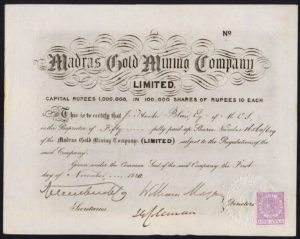 No
Madras Gold Mining Company
LIMITED.
CAPITAL RUPEES 1,000,000, IN 100,000 SHARES OF RUPEES 10 EACH
This is to certify that J. Hunter Blair Esq. of
is the Proprietor of Fifty fully paid up Shares Numbers
of the Madras Gold Mining Company, (LIMITED) subject to the Regulations of the
said Company.
Given under the Common Seal of the said Company the First
day of November 1880.
William
Secretaries
Coleman
Directors